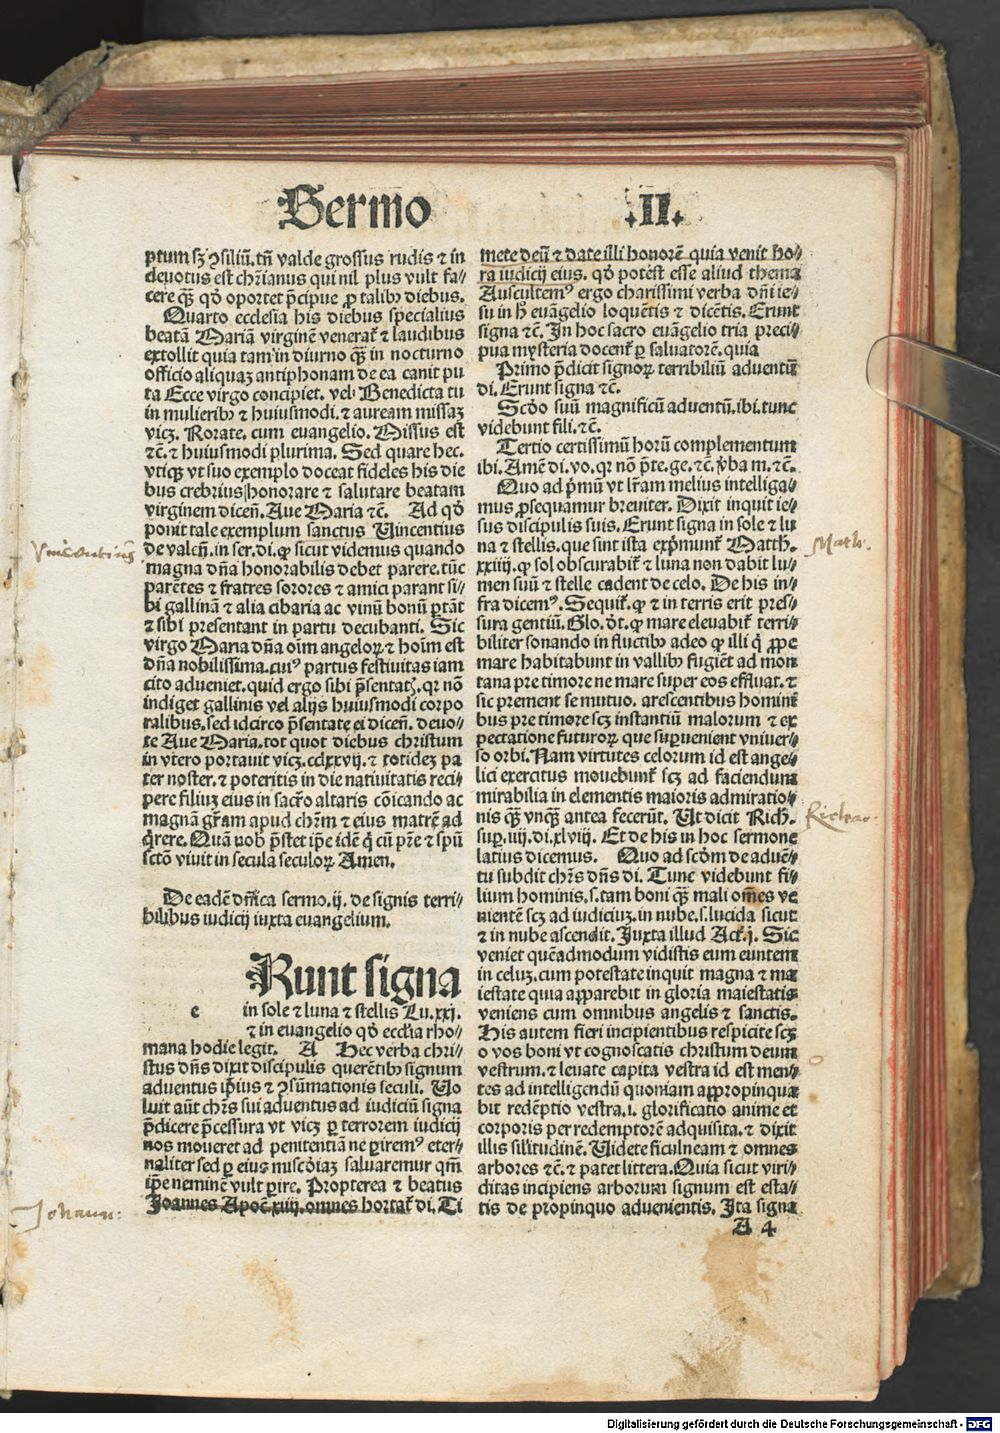 Sermo .II.
ptum sꝫ ꝯsiliū. tn̄ valde grossus rudis ⁊ in
deuotus est chr̄ianus qui nil plus vult fa⸗
cere qꝫ̄ qđ oportet p̄cipue ꝓ talibꝰ diebus.
Quarto ecclesia his diebus specialius
beatā Mariā virginē venerat̄ ⁊ laudibus
extollit quia tam in diurno qꝫ̄ in nocturno
officio aliquaꝫ antiphonam de ea canit pu
ta Ecce virgo concipiet. vel Benedicta tu
in mulieribꝰ ⁊ huiusmodi. ⁊ auream missaꝫ
vicꝫ. Rorate. cum euangelio. Missus est
⁊c̄. ⁊ huiusmodi plurima. Sed quare hec.
vtiqꝫ vt suo exemplo doceat fideles his die
bus crebrius honorare ⁊ salutare beatam
virginem dicen̄. Aue Maria ⁊c̄. Ad qđ
ponit tale exemplum sanctus Vincentius
de valen̄. in ser. di. ꝙ sicut videmus quando
magna dn̄a honorabilis debet parere. tūc
parētes ⁊ fratres sorores ⁊ amici parant si⸗
bi gallinā ⁊ alia cibaria ac vinū bonū ꝑtāt
⁊ sibi presentant in partu decubanti. Sic
virgo Maria dn̄a oīm angeloꝝ ⁊ hoīm est
dn̄a nobilissima. cuiꝰ partus festiuitas iam
cito adueniet. quid ergo sibi p̄sentatꝭ. qr nō
indiget gallinis vel alijs huiusmodi corpo
ralibus. sed idcirco p̄sentate ei dicen̄. deuo⸗
te Aue Maria. tot quot diebus christum
in vtero portauit vicꝫ. cclxxvij. ⁊ totideꝫ pa
ter noster. ⁊ poteritis in die natiuitatis reci⸗
pere filiuꝫ eius in sacr̄o altaris cōicando ac
magnā gr̄am apud chr̄m ⁊ eius matrē ad
q̄rere. Quā uob p̄stet ip̄e idē q̇ cū pr̄e ⁊ spū
sctō viuit in secula seculoꝝ Amen.
De eadē dn̄ica sermo. ij. de signis terri⸗
bilibus iudicij iuxta euangelium.
Runt signa
e in sole ⁊ luna ⁊ stellis Lu. xxj.
⁊ in euangelio qđ eccl̄ia rho⸗
mana hodie legit. A Hec verba chri⸗
stus dn̄s dixit discipulis querētibꝰ signum
aduentus ip̄ius ⁊ ꝯsūmationis seculi. Uo
luit aūt chr̄s sui aduentus ad iudiciū signa
p̄dicere p̄cessura vt vicꝫ ꝑ terrorem iudicij
nos moueret ad penitentiā ne ꝑiremꝰ eter⸗
naliter sed ꝑ eius misc̄diaꝫ saluaremur qm̄
ip̄e neminē vult ꝑire. Propterea ⁊ beatus
Joannes Apoc̄. xiiij. omnes hortat̄ di. Ti
mete deū ⁊ date illi honorē quia venit ho⸗
ra iudicij eius. qđ potest esse aliud thema
Auscultemꝰ ergo charissimi verba dn̄i ie⸗
su in h̄ euāgelio loquētis ⁊ dicētis. Erunt
signa ⁊c̄. In hoc sacro euāgelio tria preci⸗
pua mysteria docent̄ ꝑ saluatorē. quia
Primo p̄dicit signoꝝ terribiliū aduentū
di. Erunt signa ⁊c̄.
Scđo suū magnificū aduentū. ibi. tunc
videbunt fili. ⁊c̄.
Tertio certissimū horū complementum
ibi. Amē di. vo. qr nō p̄te. ge. ⁊c̄. v̄ba m. ⁊c̄.
Quo ad p̄mū vt lr̄am melius intelliga⸗
mus ꝓsequamur breuiter. Dixit inquit ie⸗
sus discipulis suis. Erunt signa in sole ⁊ lu
na ⁊ stellis. que sint ista exp̄munt̄ Matth.
xxiiij. ꝙ sol obscurabit̄ ⁊ luna non dabit lu⸗
men suū ⁊ stelle cadent de celo. De his in⸗
fra dicemꝰ. Sequit̄. ꝙ ⁊ in terris erit pres⸗
sura gentiū. Glo. d̄t. ꝙ mare eleuabit̄ terri⸗
biliter sonando in fluctibꝰ adeo ꝙ illi q̇ ꝓpe
mare habitabunt in vallibꝰ fugiēt ad mon
tana pre timore ne mare super eos effluat. ⁊
sic prement se mutuo. arescentibus hominī
bus pre timore scꝫ instantiū malorum ⁊ ex
pectatione futuroꝝ que suꝑuenient vniuer⸗
so orbi. Nam virtutes celorum id est ange⸗
lici exercitus mouebunt̄ scꝫ ad faciendum
mirabilia in elementis maioris admiratio⸗
nis qꝫ̄ vnqꝫ̄ antea fecerūt. Ut dicit Rich.
suꝑ. iiij. di. xlviij. Et de his in hoc sermone
latius dicemus. Quo ad scđm de aduē⸗
tu subdit chr̄s dn̄s di. Tunc videbunt fi⸗
lium hominis. s. tam boni qꝫ̄ mali om̄es ve
nientē scꝫ ad iudiciuꝫ. in nube. s. lucida sicut
⁊ in nube ascendit. Juxta illud Act̄. j. Sic
veniet quēadmodum vidistis eum euntem
in celuꝫ. cum potestate inquit magna ⁊ ma
iestate quia apparebit in gloria maiestatis
veniens cum omnibus angelis ⁊ sanctis.
His autem fieri incipientibus respicite scꝫ
o vos boni vt cognoscatis christum deum
vestrum. ⁊ leuate capita vestra id est men⸗
tes ad intelligendū quoniam appropinqua
bit redēptio vestra. i. glorificatio anime et
corporis per redemptorē adquisita. ⁊ dixit
illis sil'itudinē. Videte ficulneam ⁊ omnes
arbores ⁊c̄. ⁊ patet littera. Quia sicut viri⸗
ditas incipiens arborum signum est esta⸗
tis de propinquo aduenientis. Ita signa
A 4
Vincentius
Johann:
Math.
Digitalisierung gefördert durch die Deutsche Forschungsgemeinschaft - DFG